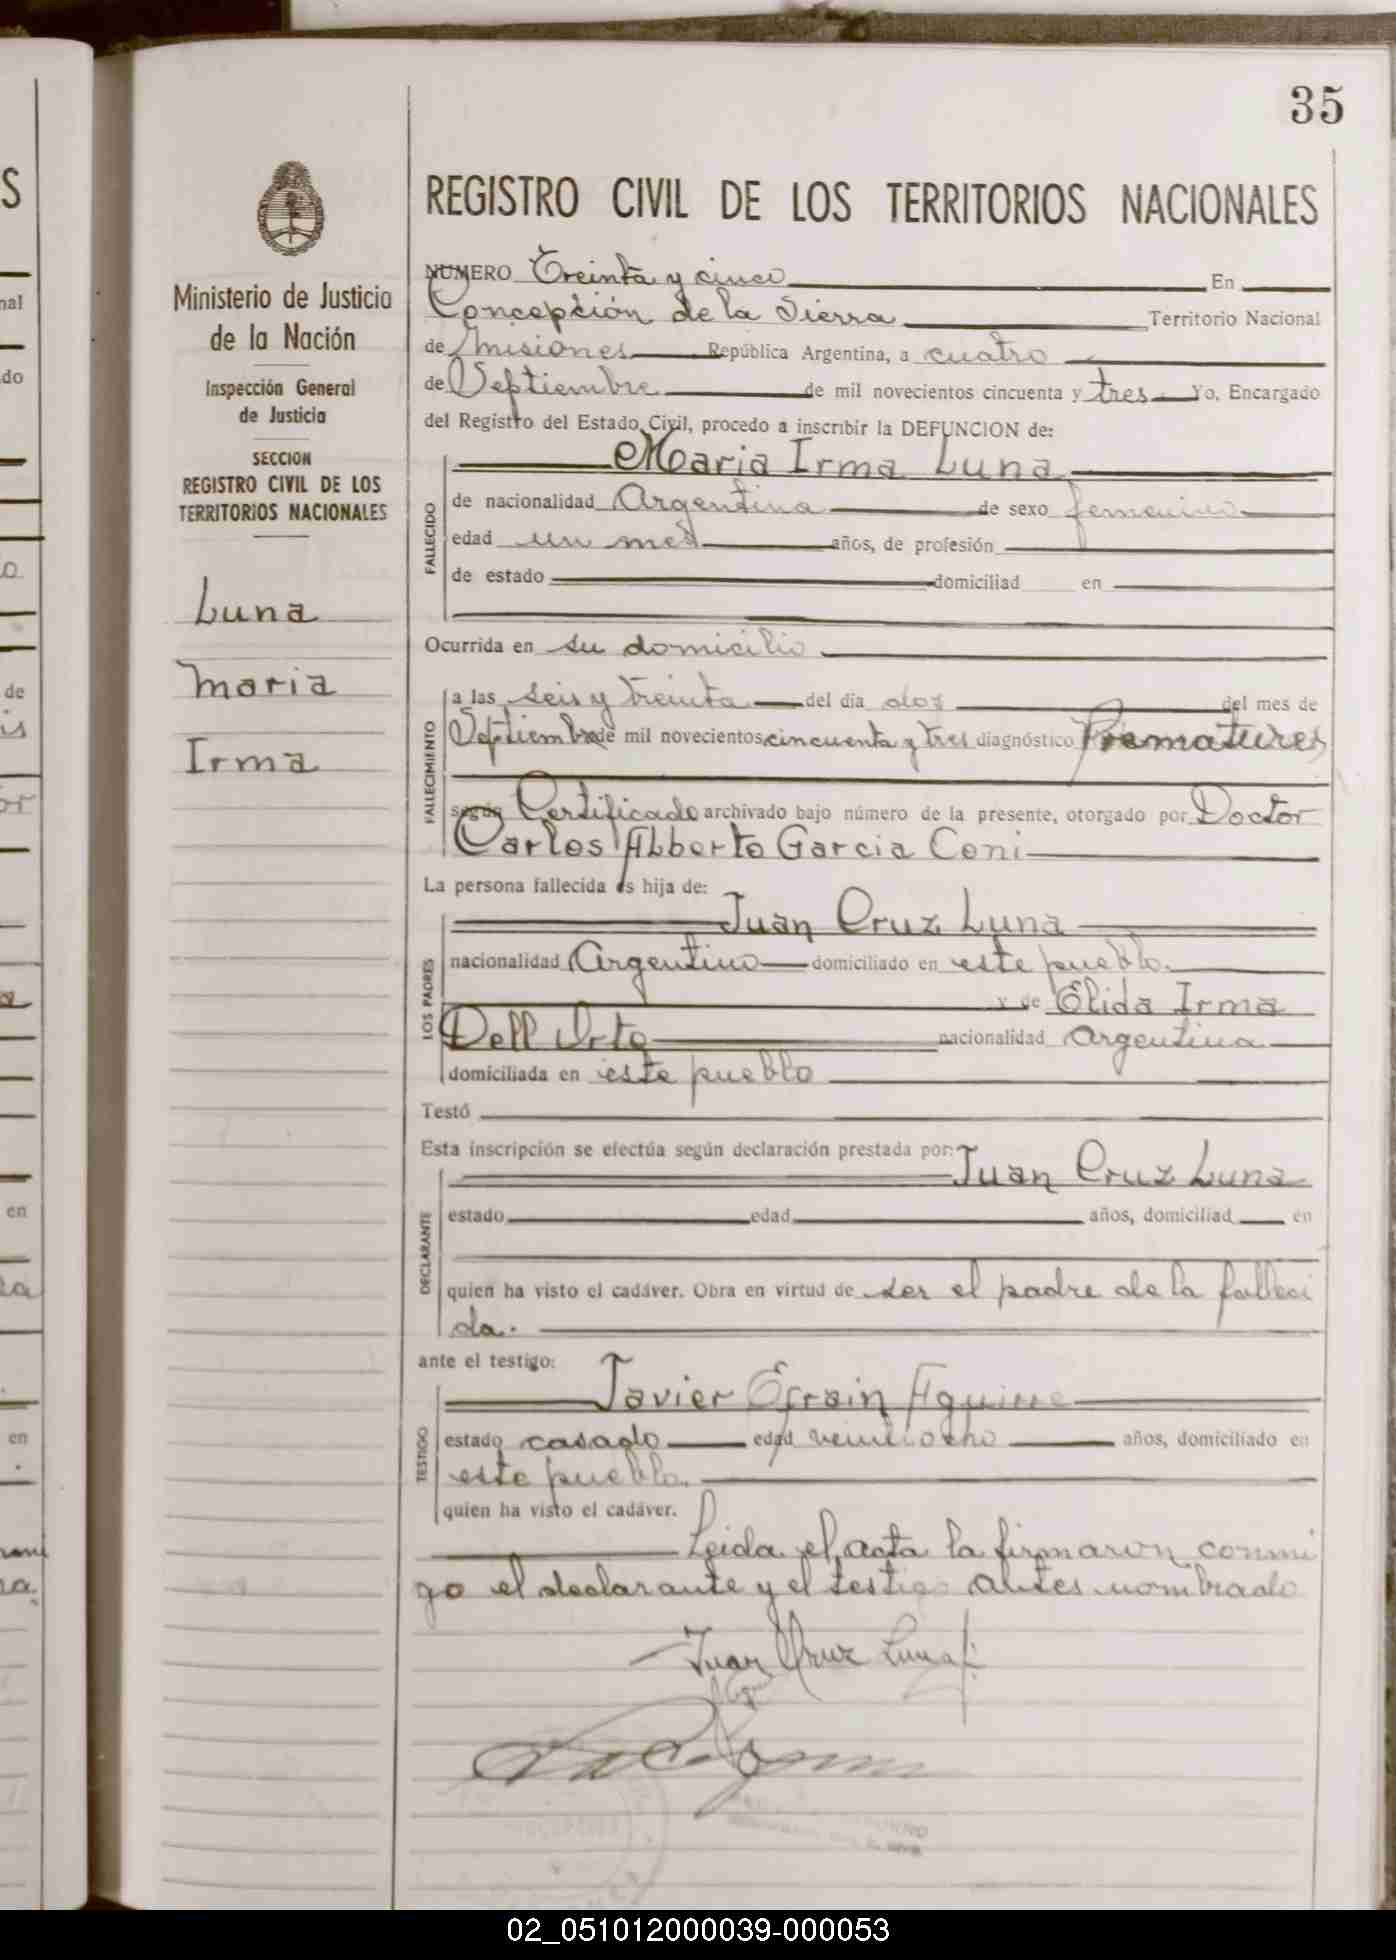 35
REGISTRO CIVIL DE LOS TERRITORIOS NACIONALES
Ministerio de Justicia
de la Nación
Inspección General
de Justicia
SECCION
REGISTRO CIVIL DE LOS
TERRITORIOS NACIONALES
Luna
Maria
Irma
NUMERO Treinta y cinco En
Concepción de la Sierra Territorio Nacional
de Misiones República Argentina, a cuatro
de Septiembre de mil novecientos cincuenta y tres Yo, Encargado
del Registro del Estado Civil, procedo a inscribir la DEFUNCION de:
Maria Irma Luna
FALLECIDO
de nacionalidad Argentina de sexo femenino
edad un mes años, de profesión
de estado domiciliad en
Ocurrida en su domicilio
FALLECIMIENTO
a las seis y treinta del día dos del mes de
Septiembre de mil novecientos cincuenta y tres diagnóstico Prematurez
según Certificado archivado bajo número de la presente, otorgado por Doctor
Carlos Alberto Garcia Coni
La persona fallecida es hija de:
LOS PADRES
Juan Cruz Luna
nacionalidad Argentino domiciliado en este pueblo.
y de Elida Irma
Dell Orto nacionalidad argentina
domiciliada en este pueblo
Testó
Esta inscripción se efectúa según declaración prestada por: Juan Cruz Luna
DECLARANTE
estado edad años, domiciliad en
quien ha visto el cadáver. Obra en virtud de ser el padre de la falleci
da.
ante el testigo:
TESTIGO
Javier Efrain Aguirre
estado casado edad veintiocho años, domiciliado en
este pueblo.
quien ha visto el cadáver.
Leida el acta la firmaron conmi
go el declarante y el testigo antes nombrado
Juan Cruz Luna
02_051012000039-000053